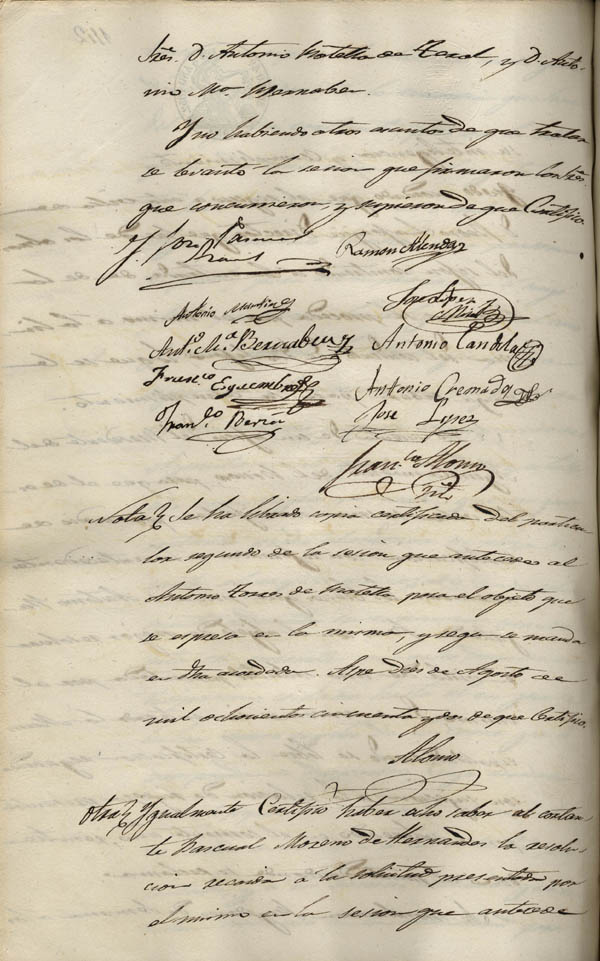 Sres. D. Antonio Botella de Ferol, y D. Anto-
nio Ma. Bernabeu.
Y no habiendo otros asuntos de que tratar
se levantó la sesion que firmaron los Sres.
que concurrieron y supieron de que Certifico.
Ramon Alenda
Antonio Martinez
Jose Lopez
Anto. Ma. Bernabeu
Antonio Candela
Franco.
Antonio Cremades
Jose Lopez
Franco. Alonso
Nota Se ha librado copia certificada del particu-
lar segundo de la sesion que antecede al
Antonio Torres de Botella para el objeto que
se espresa en la misma, y segun se manda
en dha acordada. Aspe Dies de Agosto de
mil ochocientos cincuenta y dos de que Certifico.
Alonso
Otra Ygualmente Certifico haber echo saber al
te Pascual Moreno de Hernandes la resolu-
cion recaida a la solicitud presentada por
el mismo en la sesion que antecede